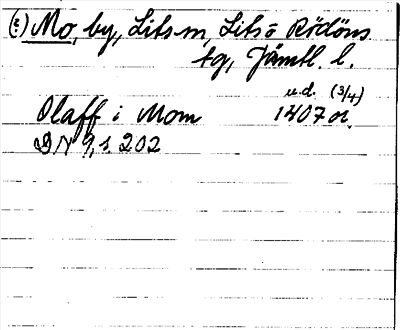 (2) Mo, by, Lits sn, Lits o Rödöns
tg, Jämtl. l.
u.d. (3/4)
Olaff i Mom 1407 or.
DN 9, s. 202